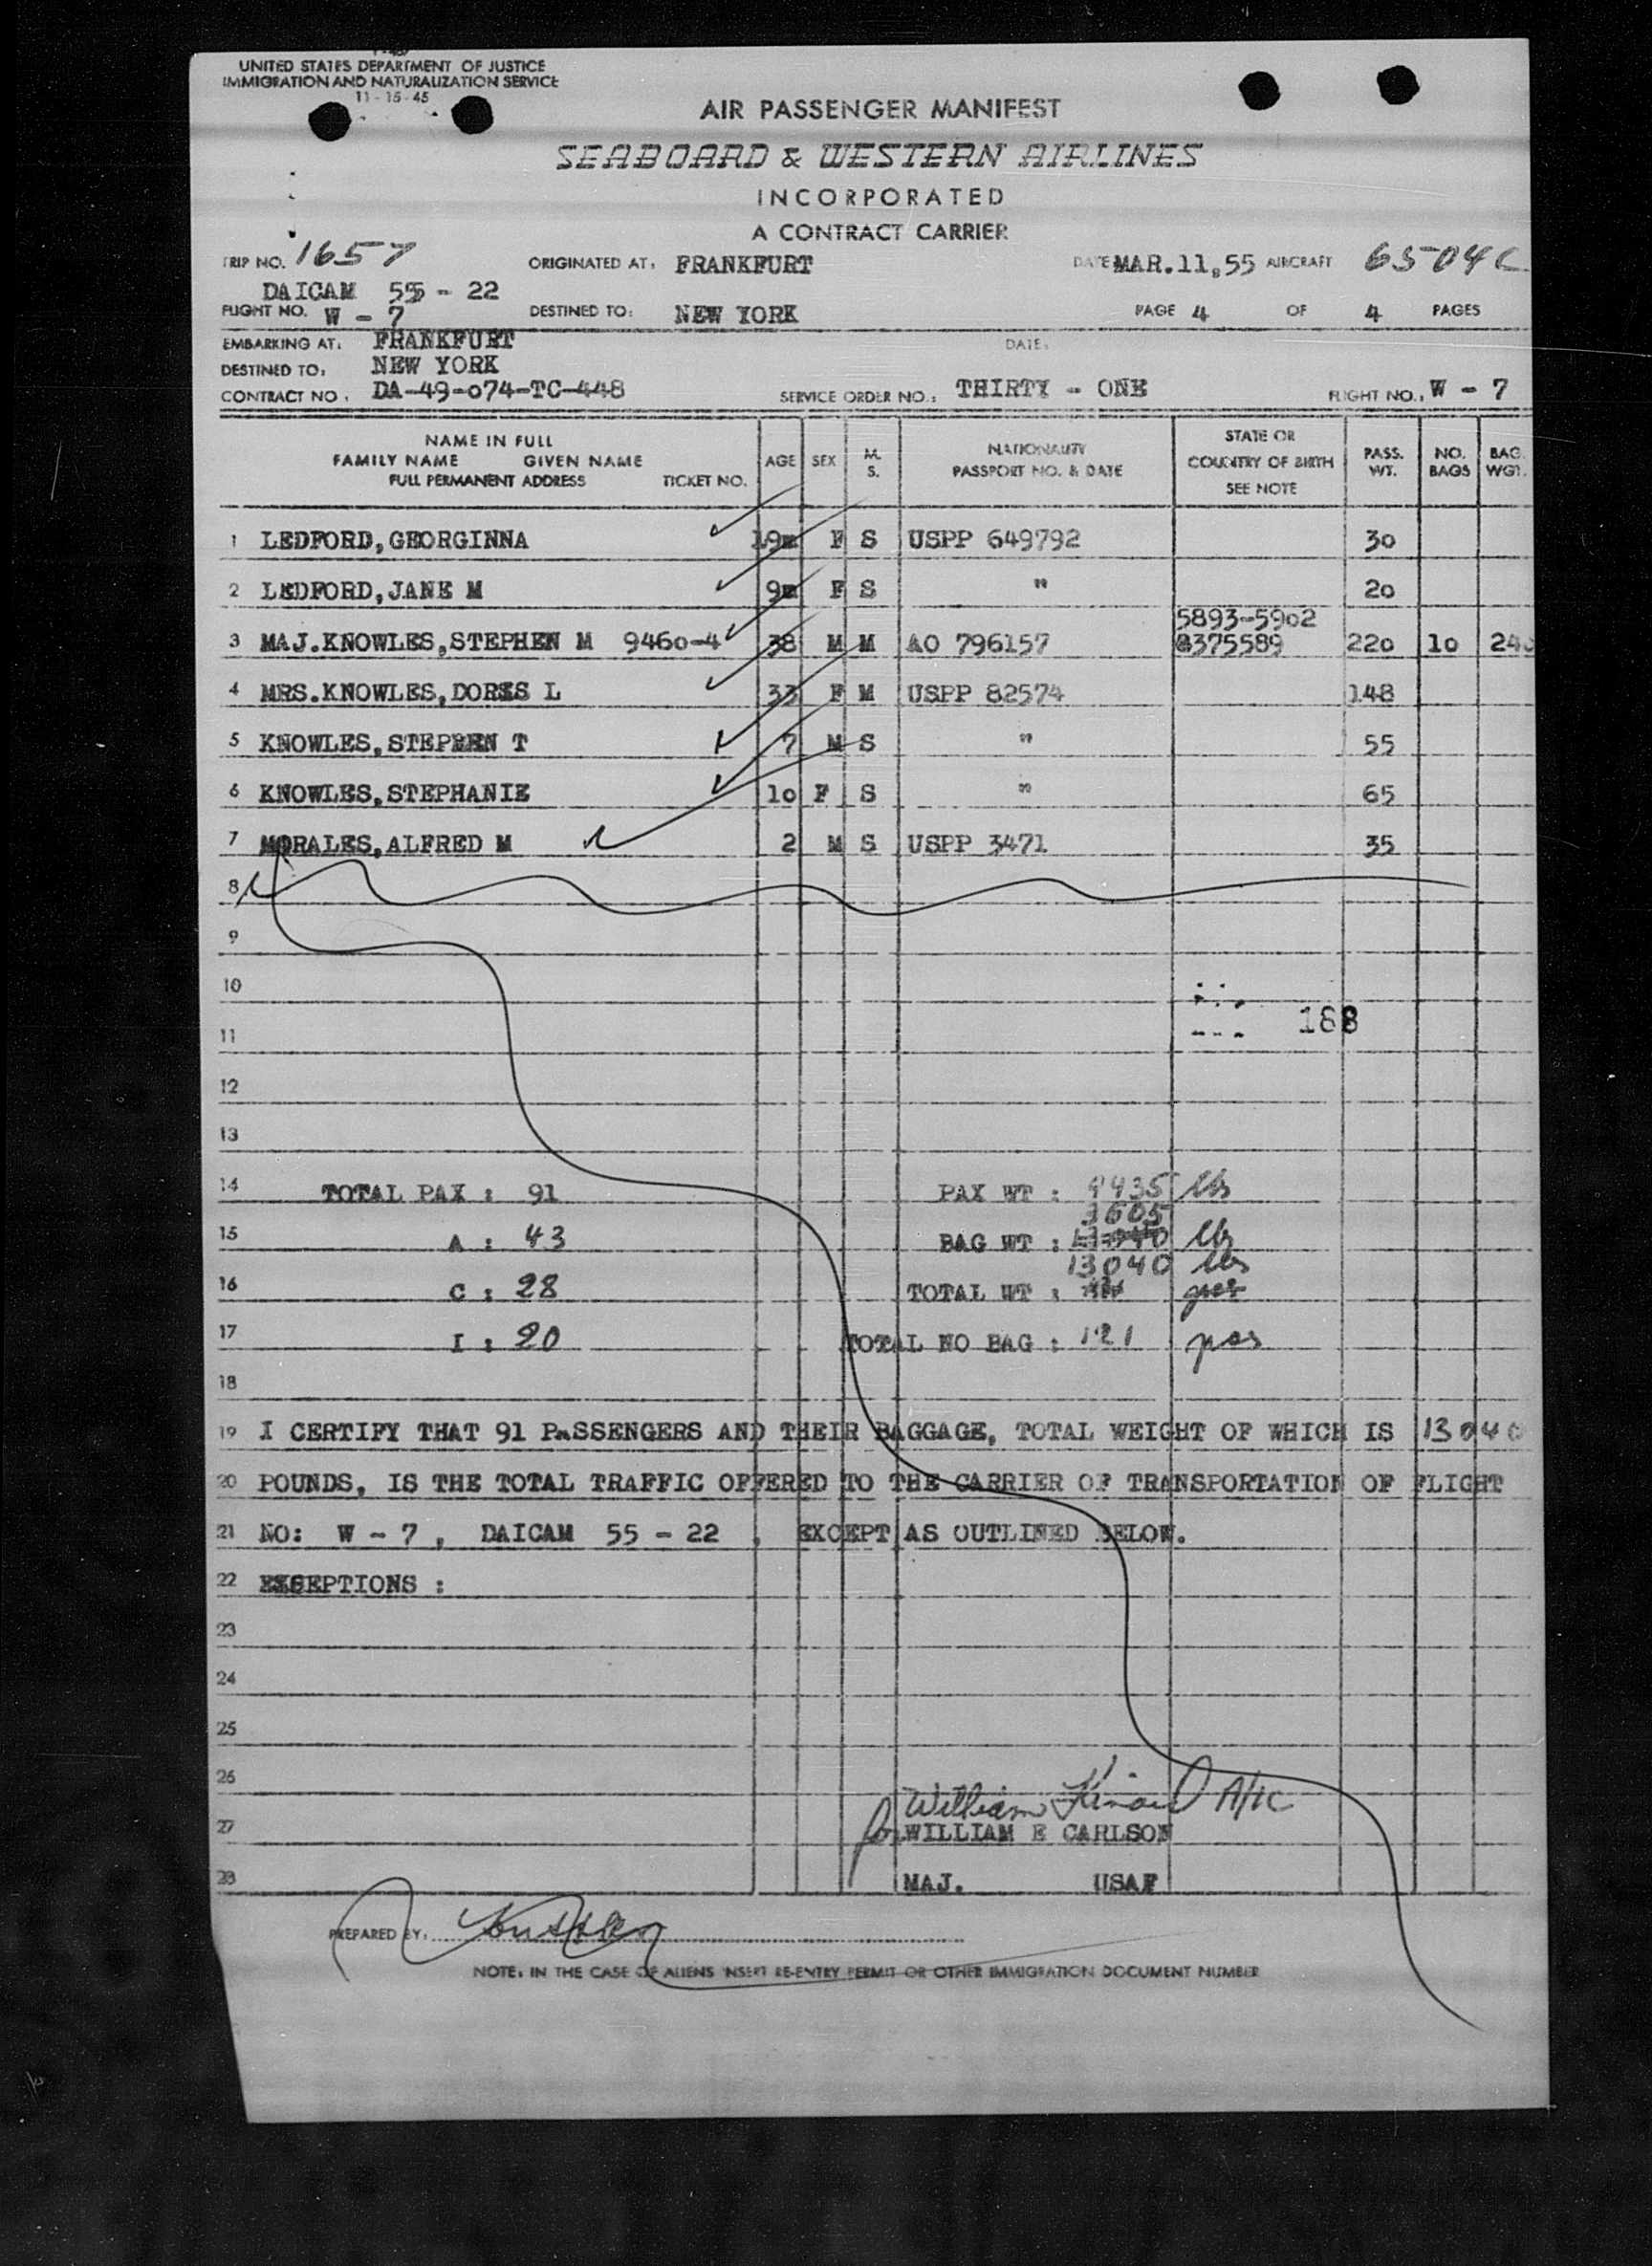 UNITED STATES DEPARTMENT OF JUSTICE
IMMIGRATION AND NATURALIZATION SERVICE
11-15-45
AIR PASSENGER MANIFEST
SEABOARD & WESTERN AIRLINES
INCORPORATED
A CONTRACT CARRIER
TRIP NO. 1657 ORIGINATED AT: FRANKFURT DATE MAR.11,55 AIRCRAFT 6504C
DAICAM 55 - 22
FLIGHT NO. W - 7 DESTINED TO: NEW YORK PAGE 4 OF 4 PAGES
EMBARKING AT: FRANKFURT DATE:
DESTINED TO: NEW YORK
CONTRACT NO: DA-49-074-TC-448 SERVICE ORDER NO.: THIRTY - ONE FLIGHT NO.: W - 7
NAME IN FULL
FAMILY NAME GIVEN NAME
FULL PERMANENT ADDRESS TICKET NO. AGE SEX M. S. NATIONALITY PASSPORT NO. & DATE STATE OR COUNTRY OF BIRTH SEE NOTE PASS. WT. NO. BAGS BAG. WGT.
1 LEDFORD,GEORGINNA 19m F S USPP 649792 30
2 LEDFORD,JANE M 9m F S " 20
5893-5902
3 MAJ.KNOWLES,STEPHEN M 9460-4 38 M M AO 796157 375589 220 10 240
4 MRS.KNOWLES,DORIS L 33 F M USPP 82574 148
5 KNOWLES,STEPHEN T 7 M S " 55
6 KNOWLES,STEPHANIE 10 F S " 65
7 MORALES,ALFRED M 2 M S USPP 3471 35
8
9
10
188
11
12
13
14 TOTAL PAX : 91 PAX WT : 9435 lbs
3605
15 A : 43 BAG WT : lbs
13040 lbs
16 C : 28 TOTAL WT : pcs
17 I : 20 TOTAL NO BAG : 121 pcs
18
19 I CERTIFY THAT 91 PASSENGERS AND THEIR BAGGAGE, TOTAL WEIGHT OF WHICH IS 13040
20 POUNDS, IS THE TOTAL TRAFFIC OFFERED TO THE CARRIER OF TRANSPORTATION OF FLIGHT
21 NO: W - 7 , DAICAM 55 - 22 , EXCEPT AS OUTLINED BELOW.
22 EXCEPTIONS :
23
24
25
26 William A/1C
27 for WILLIAM E CARLSON
28 MAJ. USAF
PREPARED BY:
NOTE: IN THE CASE OF ALIENS INSERT RE-ENTRY PERMIT OR OTHER IMMIGRATION DOCUMENT NUMBER